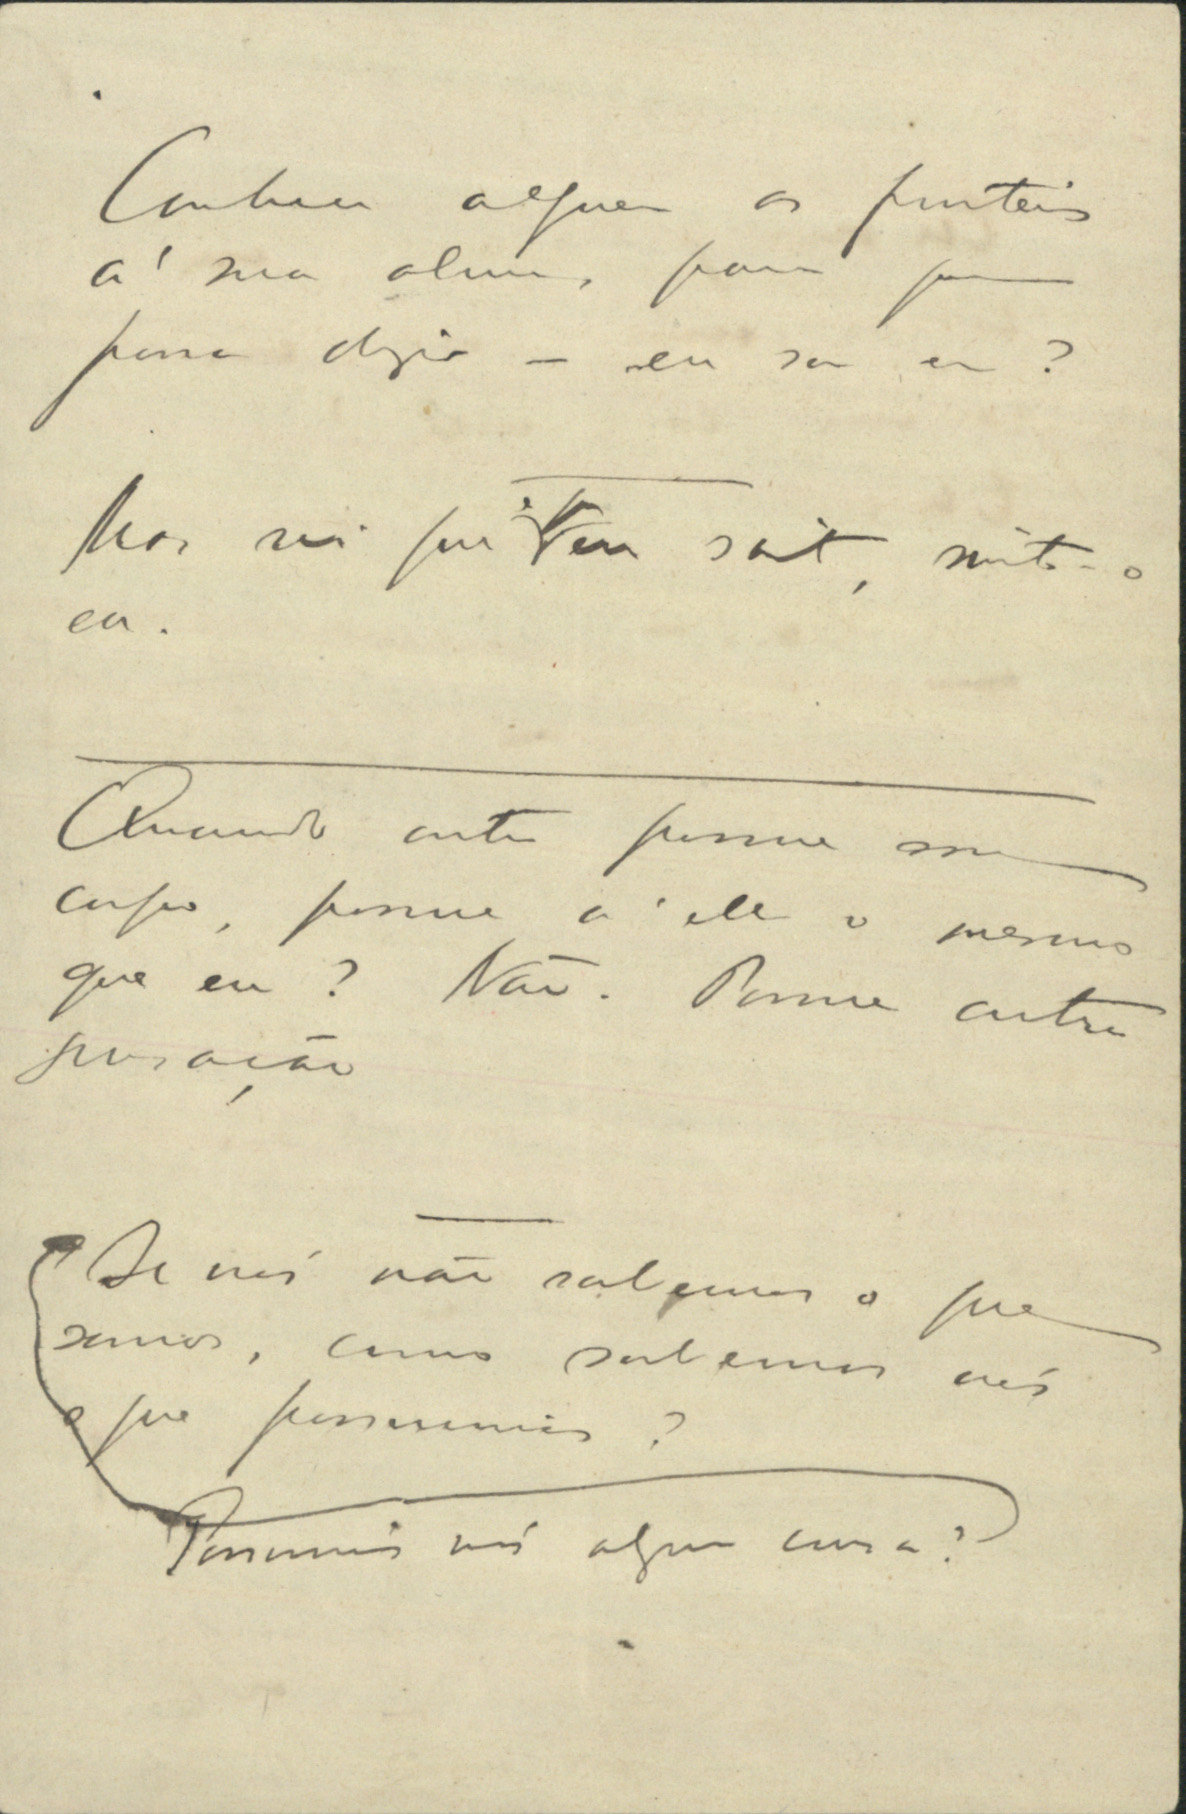 Conhece alguem as fronteiras
á sua alma, para que
possa dizer — eu sou eu?
Mas sei que o que eu sinto, sinto-o
eu.
Quando outro possue esse
corpo, possue n'elle o mesmo
que eu? Não. Possue outra
sensação
Se nós não sabemos o que
somos, como sabemos nós
o que possuimos?
Possuimos nós alguma cousa?